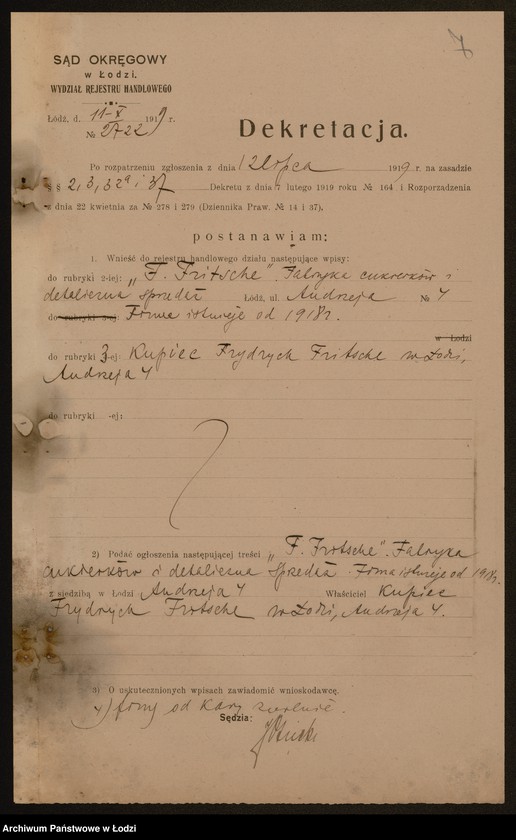 7
SĄD OKRĘGOWY
w Łodzi.
WYDZIAŁ REJESTRU HANDLOWEGO
Łódź, d. 11-X 1919 r.
№ 2722
Dekretacja.
Po rozpatrzeniu zgłoszenia z dnia 12 lipca 1919 r. na zasadzie
§ § 2, 3, 32a i 37 Dekretu z dnia 7 lutego 1919 roku № 164 i Rozporządzenia
z dnia 22 kwietnia za № 278 i 279 (Dziennika Praw. № 14 i 37),
postanawiam:
1. Wnieść do rejestru handlowego działu następujące wpisy:
do rubryki 2-iej: „F. Fritsche" Fabryka cukierków i
detaliczna sprzedaż Łódź, ul. Andrzeja № 4
do rubryki 3-ej: Firma istnieje od 1918 r.
w Łodzi
do rubryki 3-ej: Kupiec Frydrych Fritsche w Łodzi,
Andrzeja 4
do rubryki -ej:
2) Podać ogłoszenia następującej treści „F. Fritsche". Fabryka
cukierków i detaliczna sprzedaż. Firma istnieje od 1918 r.
z siedzibą w Łodzi Andrzeja 4 Właściciel Kupiec
Frydrych Fritsche w Łodzi, Andrzeja 4.
3) O uskutecznionych wpisach zawiadomić wnioskodawcę.
4) firmę od kary zwolnić.
Sędzia:
Archiwum Państwowe w Łodzi